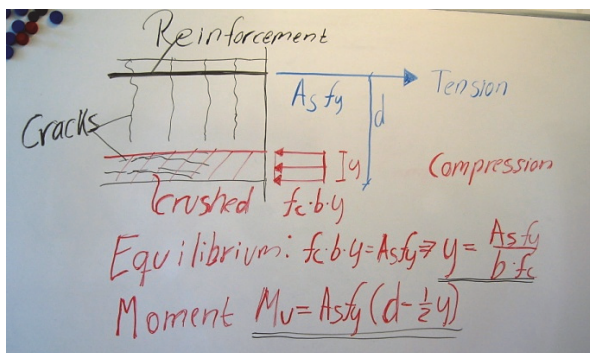 Reinforcement
Asfy
Tension
d
Cracks
y
Compression
Crushed
fc·b·y
Equilibrium: fc·b·y=Asfy⇒ y = Asfy / b·fc
Moment Mu=Asfy(d-½y)